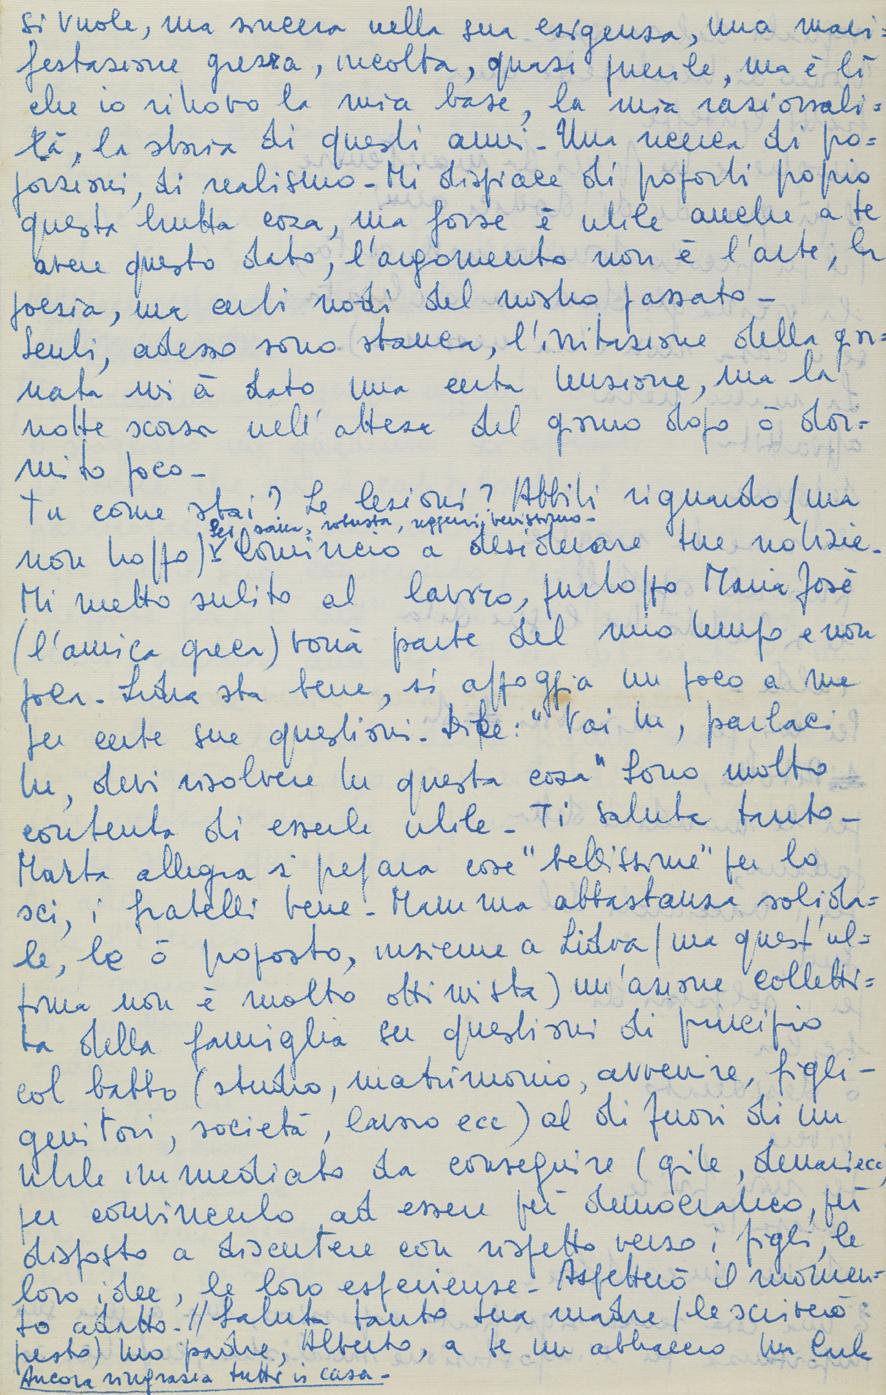 si vuole, ma sincera nella sua esigenza, una mani=
festazione grezza, incolta, quasi puerile, ma è lì
che io ritrovo la mia base, la mia razionali=
tà, la storia di questi anni - Una ricerca di pro=
porzioni, di realismo - Mi dispiace di proporti proprio
questa brutta cosa, ma forse è utile anche a te
avere questo dato, l'argomento non è l'arte, la
poesia, ma certi nodi del nostro passato -
Senti, adesso sono stanca, l'irritazione della gior=
nata mi à dato una certa tensione, ma la
notte scorsa nell'attesa del giorno dopo ò dor=
mito poco -
Tu come stai? Le lezioni? Abbiti riguardo (ma
sei sana, robusta, reggerai benissimo -
non troppo) Comincio a desiderare tue notizie -
Mi metto subito al lavoro, purtroppo Maria José
(l'amica greca) vorrà parte del mio tempo e non
poca - Lidva sta bene, si appoggia un poco a me
per certe sue questioni - Dice: "Vai tu, parlaci
tu, devi risolvere tu questa cosa" Sono molto
contenta di esserle utile - Ti saluta tanto -
Marta allegra si prepara cose "bellissime" per lo
sci, i fratelli bene - Mamma abbastanza solida=
le, le ò proposto, insieme a Lidva (ma quest'ul=
tima non è molto ottimista) un'azione colletti=
va della famiglia su questioni di principio
col babbo (studio, matrimonio, avvenire, figli -
genitori, società, lavoro ecc) al di fuori di un
utile immediato da conseguire (gite, denari ecc)
per convincerlo ad essere più democratico, più
disposto a discutere con rispetto verso i figli, le
loro idee, le loro esperienze - Aspetterò il momen=
to adatto - // Saluta tanto tua madre (le scriverò
presto) tuo padre, Alberto, a te un abbraccio tua Carla
Ancora ringrazia tutti in casa -